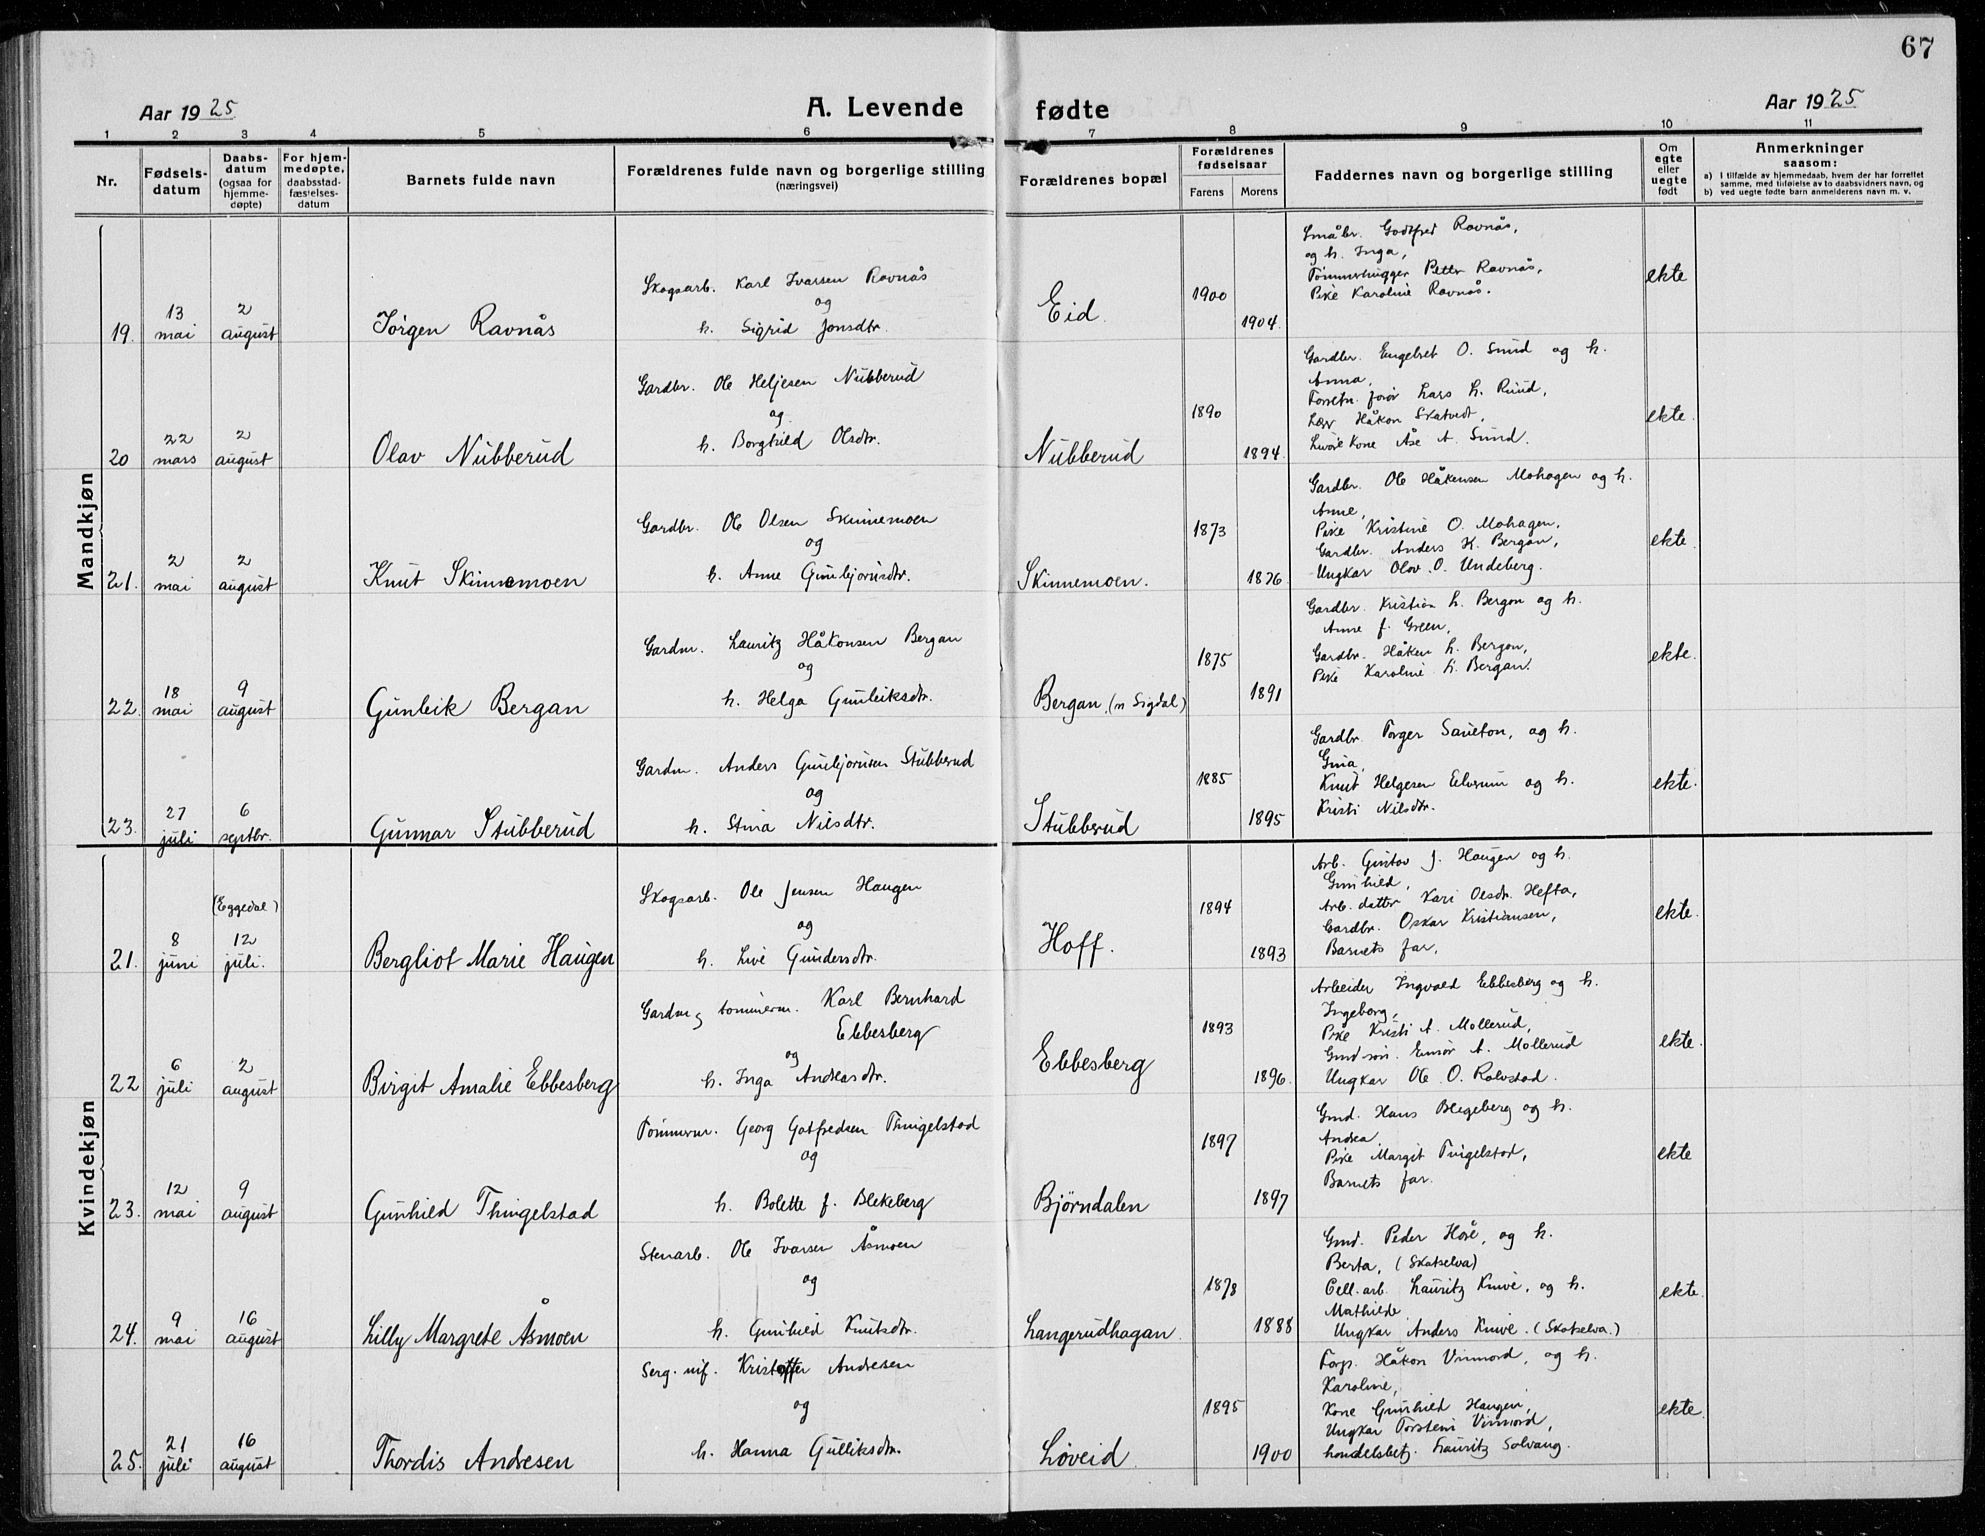 67
Aar 1925
A. Levende fødte
Aar 1925
1 2 3 4 5 6 7 8 9 10 11
Nr.
Fødsels-
datum
Daabs-
datum
(ogsaa for
hjemme-
døpte)
For hjem-
medøpte,
daabsstad-
fæstelses-
datum
Barnets fulde navn
Forældrenes fulde navn og borgerlige stilling
(næringsvei)
Forældrenes bopæl
Forældrenes
fødselsaar
Farens Morens
Faddernes navn og borgerlige stilling
Om
egte
eller
uegte
født
Anmerkninger
saasom:
a) I tilfælde av hjemmedaab, hvem der har forrettet
samme, med tilføielse av to daabsvidners navn, og
b) ved uegte fødte barn anmelderens navn m. v.
Mandkjøn
19. 13 mai
2 august
Jörgen Ravnås
Skogsarb. Karl Ivarsen Ravnås
og
h. Sigrid Jonsdtr.
Eid.
1900
1904.
Småbr. Godtfred Ravnås,
og h. Inga,
Tömmerhugger Petter Ravnås,
Pike Karoline Ravnås.
ekte
20 22 mars
2 august
Olav Nubberud
Gardbr. Ole Heljesen Nubberud
og
h. Borghild Olsdtr.
Nubberud
1890
1894.
Gardbr. Engebret O. Sund og h.
Anna,
Lars L. Ruud,
Håkon Skatvedt,
Kone Åse A. Sund.
ekte.
21. 2 mai
2 august
Knut Skinnemoen
Gardbr. Ole Olsen Skinnemoen
og
h. Anne Gunbjörnsdtr.
Skinnemoen.
1873
1876
Gardbr. Ole Håkensen Mohagen og h.
Anne,
Pike Kristine O. Mohagen,
Gardbr. Anders K. Bergan,
Ungkar Olav O. Undeberg.
ekte
22. 18 mai
9 august
Gunleik Bergan
Gardm. Lauritz Håkonsen Bergan
og
h. Helga Gunleiksdtr.
Bergan. (n Sigdal)
1875
1891
Gardbr. Kristian L. Bergan og h.
Anne f. Green,
Gardbr. Håken L. Bergan,
Pike Karoline L. Bergan.
ekte.
23. 27 juli
6 septbr.
Gunnar Stubberud
Gardm. Anders Gunbjörnsen Stubberud
og
h. Stina Nilsdtr.
Stubberud
1885
1895
Gardbr. Torger og h.
Gina,
Knut Helgesen og h.
Kristi Nilsdtr.
ekte.
Kvindekjøn
21. 8 juni
(Eggedal)
12 juli.
Bergliot Marie Haugen
Skogsarb. Ole Jensen Haugen
og
h. Live Gundersdtr.
Hoff.
1894
1893
Arb. Gustav J. Haugen og h.
Gunhild,
Arb. datter Kari Olsdtr. Hefta,
Gardbr. Oskar Kristiansen,
Barnets far,
ekte.
22 6 juli
2 august
Birgit Amalie Ebbesberg
Gardm og tömmerm. Karl Bernhard
Ebbesberg
og
h. Inga Andreasdtr.
Ebbesberg
1893
1896.
Arbeider Ingvald Ebbesberg og h.
Ingeborg,
Pike Kristi A. Mollerud,
Gmdsön. Einar A. Mollerud
Ungkar Ole O. Rolvstad.
ekte.
23. 12 mai
9 august
Gunhild Thingelstad
Tömmerm. Georg Gotfredsen Thingelstad
og
h. Bolette f. Blekeberg
Bjørndalen
1897
1897
Gmd. Hans Blegeberg og h.
Andrea
Pike Margit Tingelstad,
Barnets far.
ekte
24. 9 mai
16 august
Lilly Margrete Åsmoen
Stenarb. Ole Ivarsen Åsmoen
og
h. Gunhild Knutsdtr.
Langerudhagan.
1878
1888
Gmd. Peder Hoše, og h.
Berta, (Skotselva)
Cell.arb. Lauritz Knive, og h.
Mathilde
Ungkar Anders Knive. (Skotselva.)
ekte.
25. 21 juli
16 august
Thordis Andresen
Serg. mif. Kristoffer Andresen
og
h. Hanna Gulliksdtr.
Løveid
1895
1900
Forp. Håkon Vinmord, og h.
Karoline,
Kone Gunhild Haugen,
Ungkar Torstein Vinmord,
handelsbetj. Lauritz Solvang.
ekte.